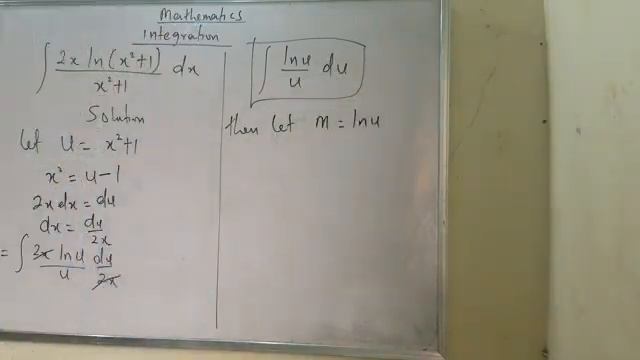 Mathematics
Integration
∫ 2x ln(x²+1) / x²+1 dx
Solution
let u = x²+1
x² = u − 1
2x dx = du
dx = du/2x
= ∫ 2x ln u / u du/2x
∫ ln u / u du
then let m = ln u